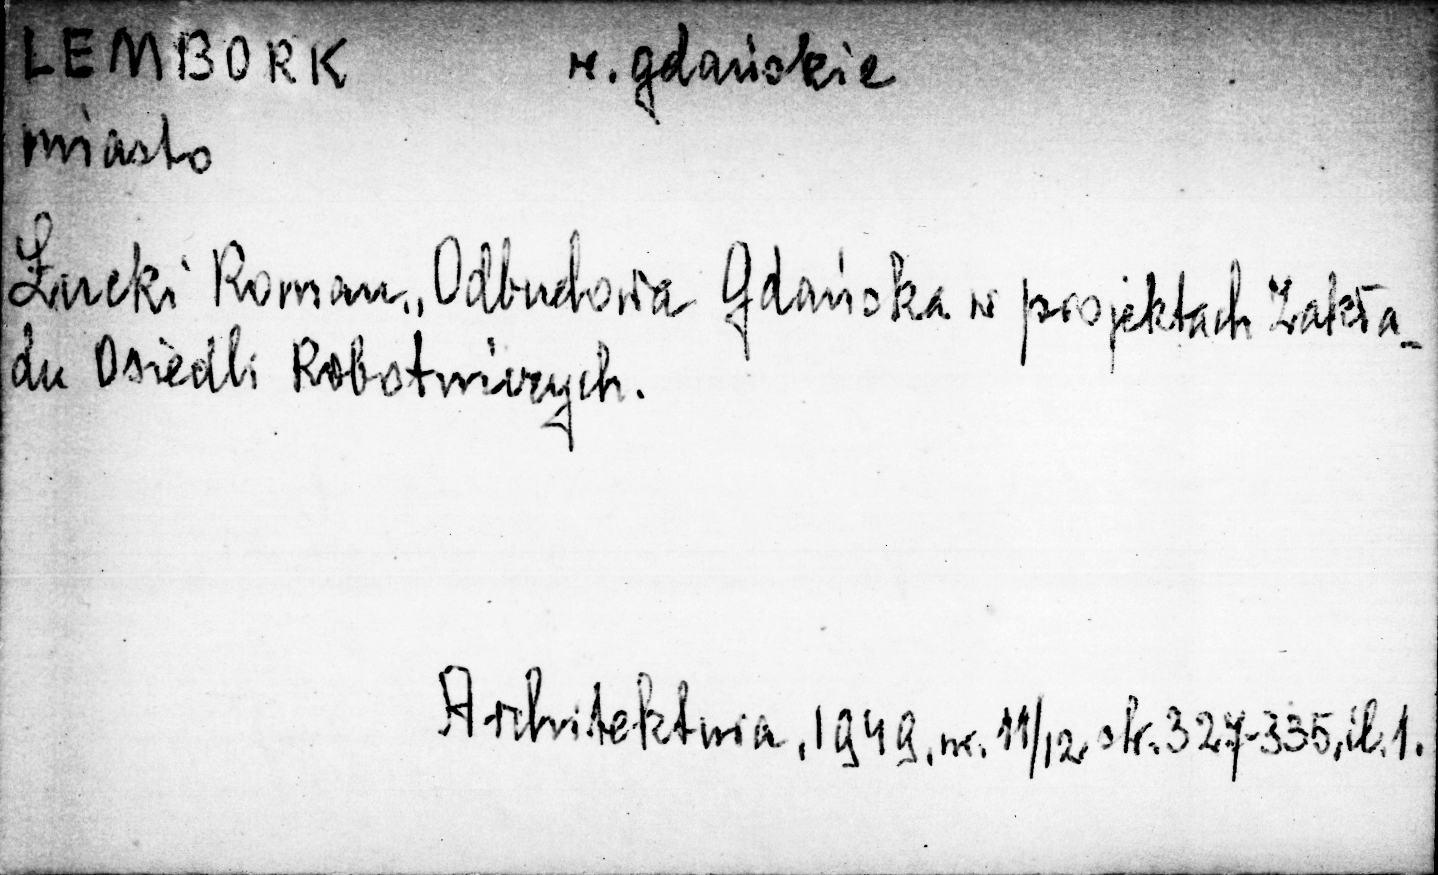 LEMBORK w. gdańskie
miasto
Żurcki Roman, „Odbudowa Gdańska w projektach Zakła-
du Osiedli Robotniczych.
Architektura, 1949, nr. 11/12, str. 327-335, il. 1.